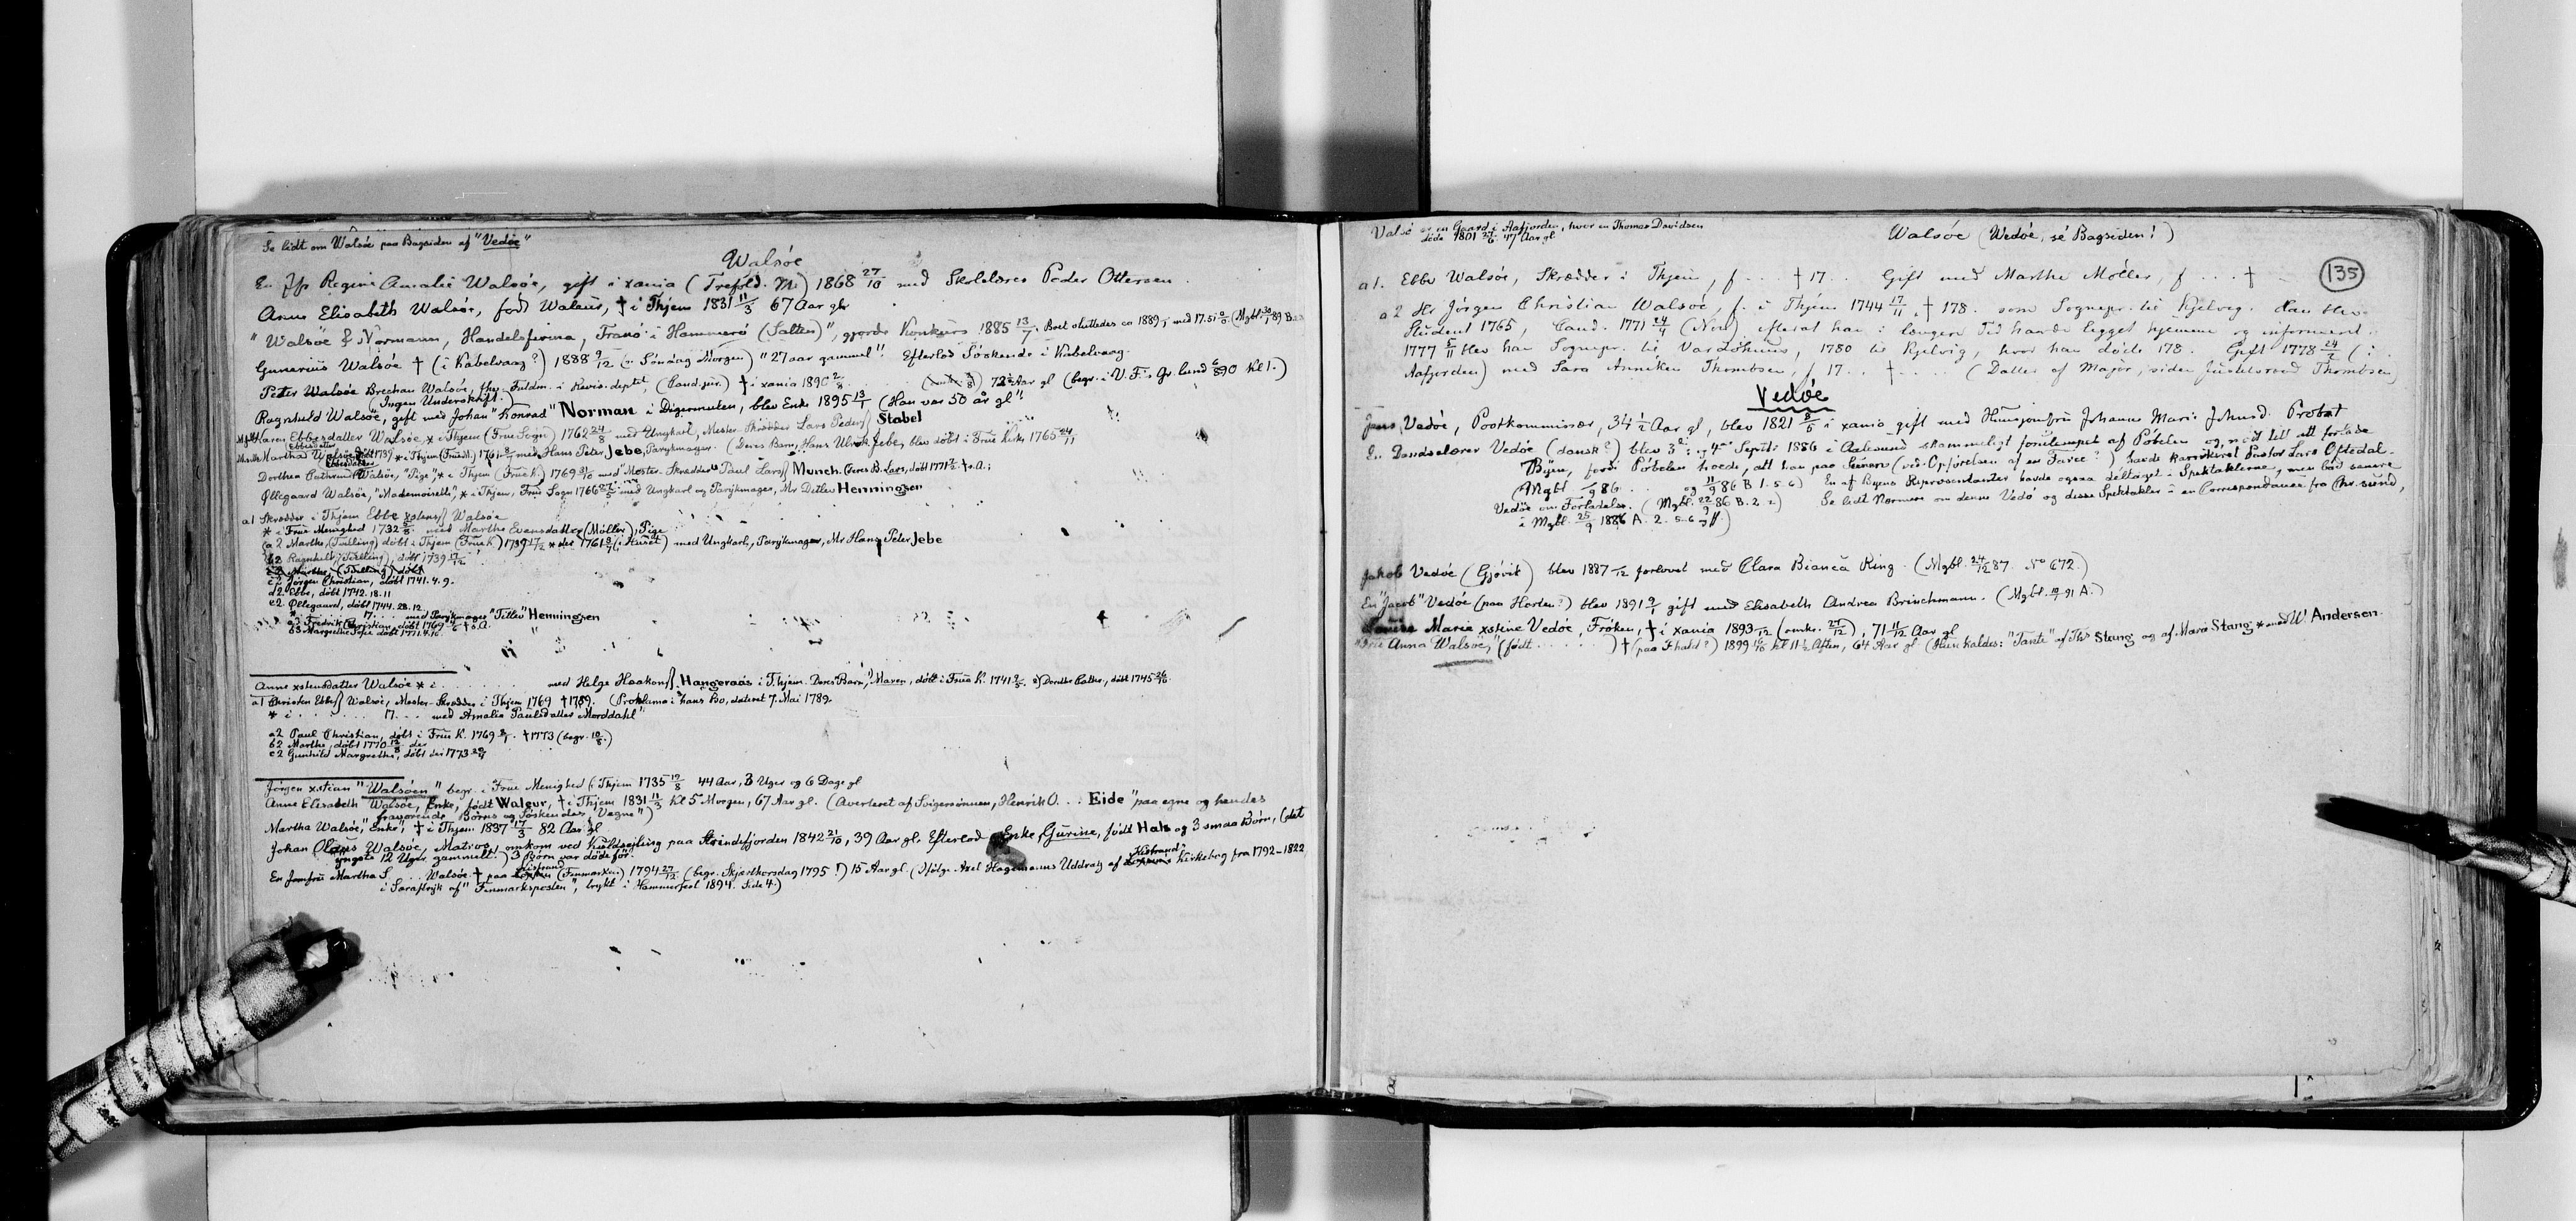 Se lidt om Walsöe paa Bagsiden af "Vedöe"
Walsöe
En Jfr Regine Amalie Walsöe, gift i xania (Trefold. M.) 1868 27/10 med Skolelærer Peder Ottersen.
Anne Elisabeth Walsöe, född Waleur, † i Thjem 1831 11/3 67 Aar gl.
"Walsöe & Normann, Handelsfirma, Tranö i Hammerö (Salten)", gjorde Konkurs 1885 13/7. Boet sluttedes ca 1889, med 17.51 % (Mgbl. 30/1 89 B.
Gunerius Walsöe † (i Kabelvaag?) 1888 9/12 (Söndag Morgen) "27 aar gammel". Efterlod Söskende i Kabelvaag.
Peter Walsöe Brechan Walsöe, fhv. Fuldm. i Revis. deptet, (Cand. jur.) † i xania 1890 2/8 72 Aar gl (begr. i V. F.s Gr. lund 6/8 90 Kl 1.)
Ingen Underskrift.)
Ragnhild Walsöe, gift med Johan "Konrad" Norman i Digermulen, blev Enke 1895 13/1 (Han var 50 år gl"
Karen Ebbesdatter Walsöe, * i Thjem (Frue Sogn) 1762 24/8 med Ungkarl, Mester-Skrædder Lars Peders Stabel
Martha Ebbesdatter Walsöe, döbt 1739 * i Thjem (Frue M.) 1761 med Hans Peter Jebe, Parykmager. (Deres Barn, Hans Ulrik Jebe, blev döbt i Frue Kirke 1765 24/11
Dorthea Cathrina Ebbesdatter Walsöe, "Pige", * i Thjem (Frue K.) 1769 31/10 med Mester Skrædder Paul Lars Munch. (Deres B. Lars, döbt 1771 † s.A.;
Øllegaard Walsöe, "Mademoiselle", * i Thjem, Frue Sogn 1766 med Ungkarl og Parykmager, Mr Detlev Henningsen
a1 Skrædder i Thjem Ebbe xstens Walsöe
* i Frue Menighed 1732 med Marthe Evensdatter (Möller), Pige
a2 Marthe, (Tvilling) döbt i Thjem (Frue K.) 1739 17/12 * der 1761 (i Huset) med Ungkarl, Parykmager, Mr Hans Peter Jebe
b2 Ragnhild, (Tvilling), döbt 1739 17/12
c2 Marthe, (Tvilling) döbt
c2 Jörgen Christian, döbt 1741. 4. 9.
d2 Ebbe, döbt 1742. 18. 11
e2 Øllegaard, döbt 1744. 28. 12.
* 17 . . . med Parykmager "Titlev" Henningsen
a3 Fredrik Christian, döbt 1769 † s.A.
b3 Margrethe Sofie döbt 1771. 4. 10.
Anne xstensdatter Walsöe * i . . . . . . med Helge Haakons Hangeraas i Thjem. Deres Barn, 1) Maren, döbt i Frue K. 1741 2) Dorothe Cathr., döbt 1745 26/10
a1 Christen Ebbes Walsöe, Mester-Skrædder i Thjem 1769 † 1789. (Proklama i hans Bo, dateret 7. Mai 1789.
* i . . . . . . 17. . . . med Amalia Paulsdatter Morddahl"
a2 Paul Christian, döbt i Frue K. 1769 † 1773 (begr. 10/8.)
b2 Marthe, döbt 1770 12/8 der
c2 Gunhild Margrethe, döbt der 1773
Jörgen xstian "Walsöen" begr. i Frue Menighed i Thjem 1735 19/8 44 Aar, 3 Uger og 6 Dage gl
Anne Elisabeth Walsöe, Enke, född Waleur, † i Thjem 1831 11/3 Kl 5 Morgen, 67 Aar gl. (Averteret af Svigersönnen, Henrik O. . . Eide "paa egne og hendes
fraværende Börns og Söskendes Vegne")
Martha Walsöe, "Enke", † i Thjem 1837 17/3 82 Aar gl
Johan Olaus Walsöe, Matros, omkom ved Kuldseiling paa Strindefjorden 1842 21/10, 39 Aar gl. Efterlod Enke, Gurine, född Hals og 3 smaa Börn, (det
yngste 12 Uger gammelt.) 3 Börn var döde för.
En Jomfru Martha S. . . Walsöe † paa Kistrand (Finmarken) 1794 27/12 (begr. Skjærthorsdag 1795 !) 15 Aar gl. (Ifölge Axel Hagemanns Uddrag af Kistrands Kirkebog fra 1792–1822
i Særaftryk af "Finmarksposten", trykt i Hammerfest 1894. Side 4.)
Valsö er en Gaard i Aafjorden, hvor en Thomas Davidsen
döde 1801 27/6 47 Aar gl
Walsöe (Wedöe, se Bagsiden!)
135
a1. Ebbe Walsöe, Skrædder i Thjem, f. . . . † 17. . Gift med Marthe Möller, f . . . †
a2 Hr Jörgen Christian Walsöe, f. i Thjem 1744 17/11, † 178. som Sognepr. til Kjelvig. Han blev
Student 1765, Cand. 1771 24/4 (Non), efterat han i længere Tid havde ligget hjemme og informeret.
1777 5/11 blev han Sognepr. til Vardöhuus, 1780 til Kjelvig, hvor han döde 178. Gift 1778 24/2 (i
Aafjorden) med Sara Anniken Thombsen, f 17. . † . . . . (Datter af Major, siden Justitsraad Thombsen)
Vedöe
Jens Vedöe, Postkommissær, 34 1/2 Aar gl, blev 1821 8/5 i xania gift med Huusjomfru Johanne Marie Johnsd. Probst
En Dandselærer Vedöe (dansk?) blev 3die og 4de Septbr 1886 i Aalesund skammeligt forulempet af Pöbelen og nödt till att forlade
Byen, fordi Pöbelen troede, att han paa Scenen (ved Opförelsen af en Farce?) havde karrikeret Pastor Lars Oftedal.
(Mgbl /9 86. og 11/9 86 B 1. 5. 6) En af Byens Repræsentanter havde ogsaa deltaget i Spektaklerne, men bad senere
Vedöe om Forladelse. (Mgbl. 22/9 86 B. 2. 2) Se lidt Nærmere om denne Vedö og disse Spektakler i en Correspondance fra Chr. sund,
i Mgbl. 25/9 1886 A. 2. 5-6 ff.)
Jakob Vedöe (Gjövik) blev 1887 /12 forlovet med Clara Bianca Ring. (Mgbl. 24/12 87. No 672.)
En "Jacob" Vedöe (paa Horten?) blev 1891 9/1 gift med Elisabeth Andrea Brinchmann. (Mgbl. 91 A.)
Louise Marie xstine Vedöe, Fröken, † i xania 1893 /12 (omkr. 27/12), 71 11/12 Aar gl
"Frue Anna Walsöe," (födt . . . . . .) † (paa Fhald?) 1899 Kl 11 1/2 Aften, 64 Aar gl (Hun kaldes: "Tante" af Ths Stang og af Marie Stang * med W. Andersen.